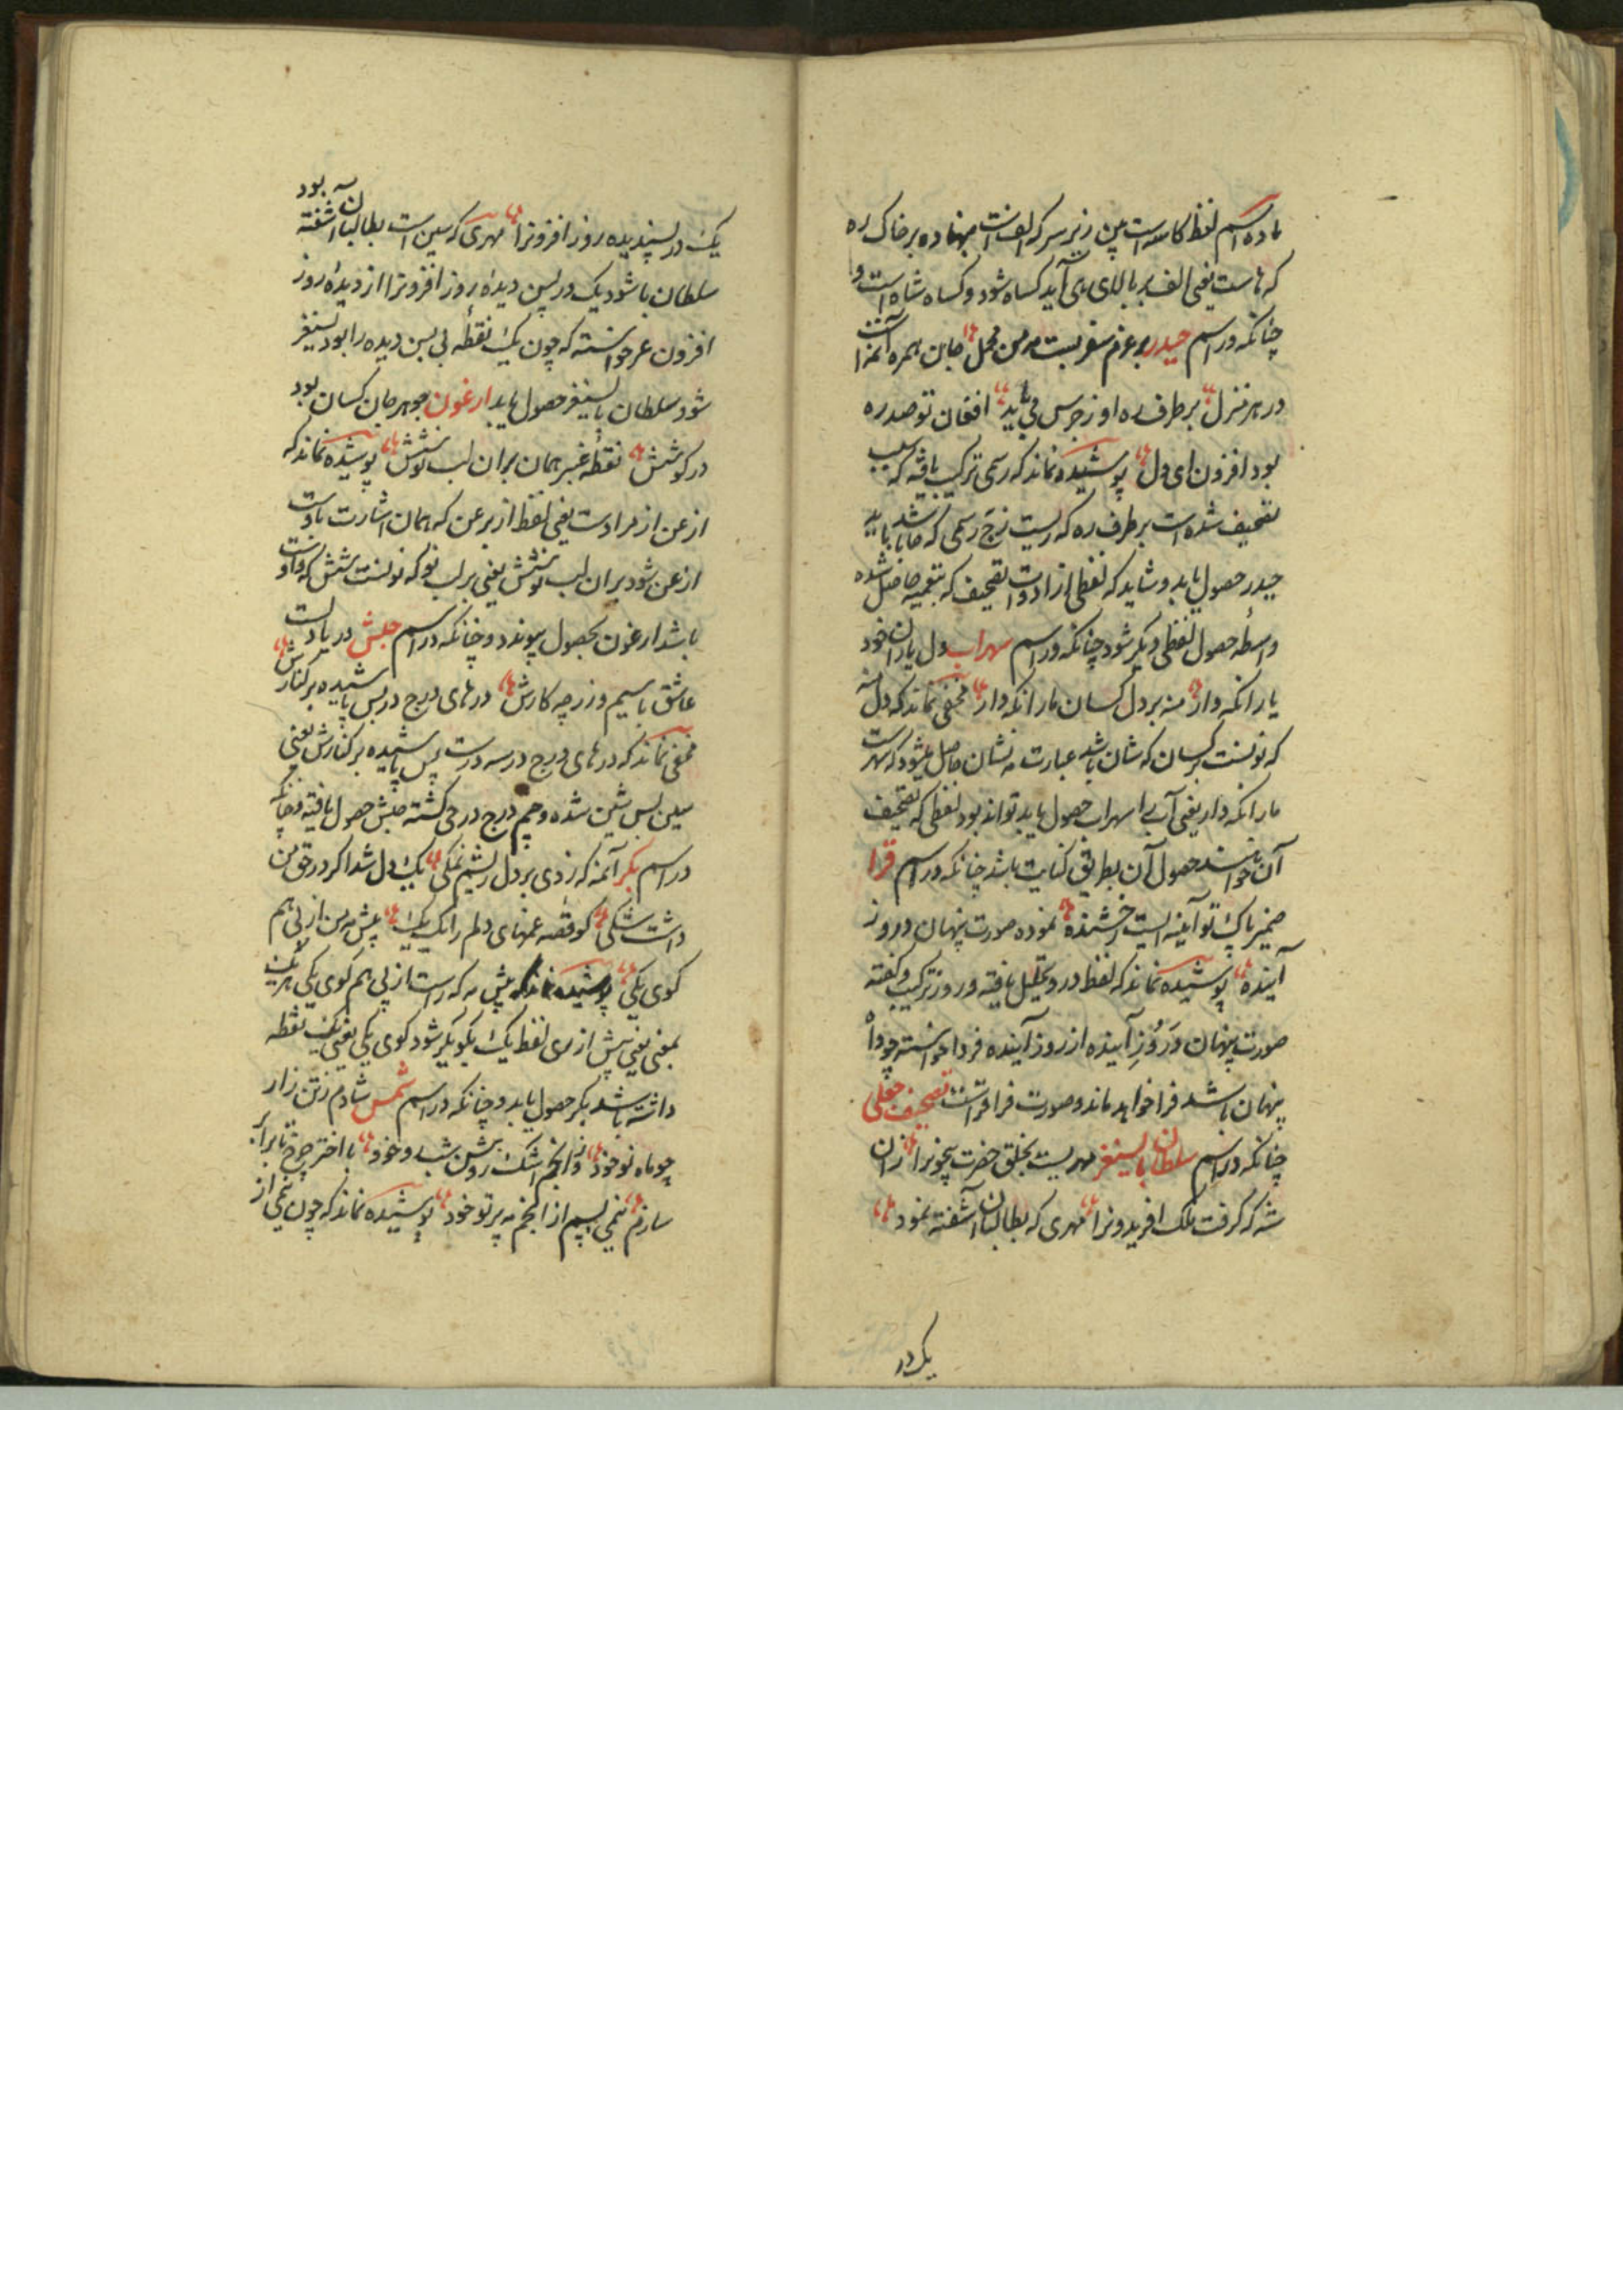 ماده اسم لفظ کاسه است پس زیر سر که الف است نهاده بر خاک ره
که هاست یعنی الف بر بالای ها آید کساه شود و کساه شاه است و
چنانکه در اسم حیدر بر عزم سفر بست مه من محمل جان همره
در هر منزل بر طرف ره او ز جرس می باید افغان تو صد ره
بود افزون ای دل پوشیده نماند که رسمی ترکیب یافته که سبب
تصحیف شده است بر طرف ره که
حیدر حصول یابد و شاید که لفظی از ادوات تصحیف که بتعمیه حاصل شده
واسطه حصول لفظی دیگر شود چنانکه در اسم سهراب دل یاران خود
یارا نکه دار منه بر دل کسان ما را نکه دار مخفی نماند که دل منه
که نونست بر کسان که شان باشد عبارت منشان حاصل میشود که
ما را نکه دار یعنی آب را سهراب حصول یابد تواند بود لفظی که تصحیف
آن خواسته حصول آن بطریق کنایت باشد چنانکه در اسم قرا
ضمیر پاک تو آینه ایست رخشنده نموده صورت پنهان در روز
آینده پوشیده نماند که لفظ در و تحلیل یافته و روز ترکیب و گفته
صورت پنهان در روز آینده از روز آینده فردا خواسته چو دا
پنهان باشد فرا خواهد ماند و صورت فرا قراست تصحیف جعلی
چنانکه در اسم سلطان بایسنغر مهریست بخلق حضرت بیچونرا زان
شه که کرفت ملک افریدونرا مهری که بطالبان آشفته نمود
یک در
یک در پسندیده روز افزونرا مهری که سین است بطالبان آشفته بود
سلطان با شود یک در پس دیده روز افزونرا از دیده روز
افزون غر خواسته که چون یک نقطه بی پس دیده را بود یسنغر
شود سلطان بایسنغر حصول یابد ارغون جوهر جان کسان بود
در کوشش نقطه عنبر همان بران لب نوشش پوشیده نماند که
از عن از مرادست یعنی لفظ از بر عن که همان اشارت باوست
ازعن شود بران لب نوشش یعنی بر لب نو که نونست شش که واو است
باشد ارغون بحصول پیوندد و چنانکه در اسم حبش در یادلست
عاشق با سیم و زر چه کارش درهای درج در پس پاشیده بر کنارش
مخفی نماند که درهای درج در سه درست پس پاشیده بر کنارش یعنی
سین پس شین شده و جیم درج در حی کشته حبش حصول یافته و چنانکه
در اسم بکر آنمه که زدی بر دل ریشم نمکی یک دل شد اگر در حق من
داشت شکی کو قصه غمهای دلم را یک یک پیش مه من از پی هم
کوی یکی پوشیده نماند که پیش مه که راست از پی هم کوی یکی
بمعنی یعنی پیش از ری لفظ یک بکو بکر شود کوی یکی یعنی یک نقطه
داشته باشد بکر حصول یابد و چنانکه در اسم شمس شادم ز تن زار
چو ماه نو خود وز انجم اشک روشن شب و خود با اختر چرخ تا برابر
سازم نیمی بسیم از انجم مه پرتو خود پوشیده نماند که چون نیمی از